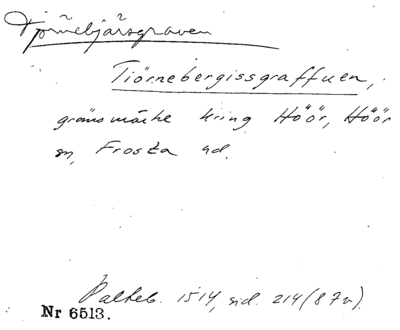 Tjörnebjärsgraven
Tiörnebergissgraffuen,
gränsmärke kring Höör, Höör
sn, Frosta hd.
Palteb. 1514, sid. 214 (87v).
Nr 6513.